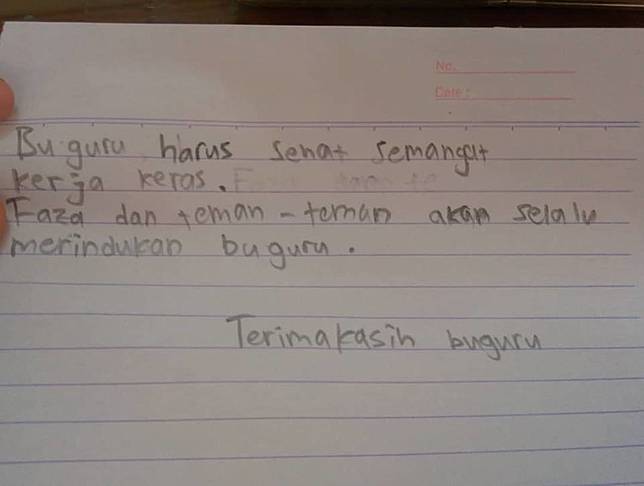 No.
Date :
Bu guru harus sehat semangat
kerja keras.
Faza dan teman - teman akan selalu
merindukan bu guru.
Terimakasih buguru